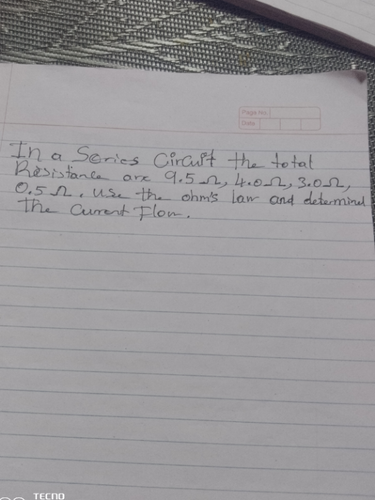 Page No.
Date
In a Series Circuit the total
Resistance are 9.5Ω, 4.0Ω, 3.0Ω,
0.5Ω. use the ohm's law and determind
The Current Flow.
TECNO